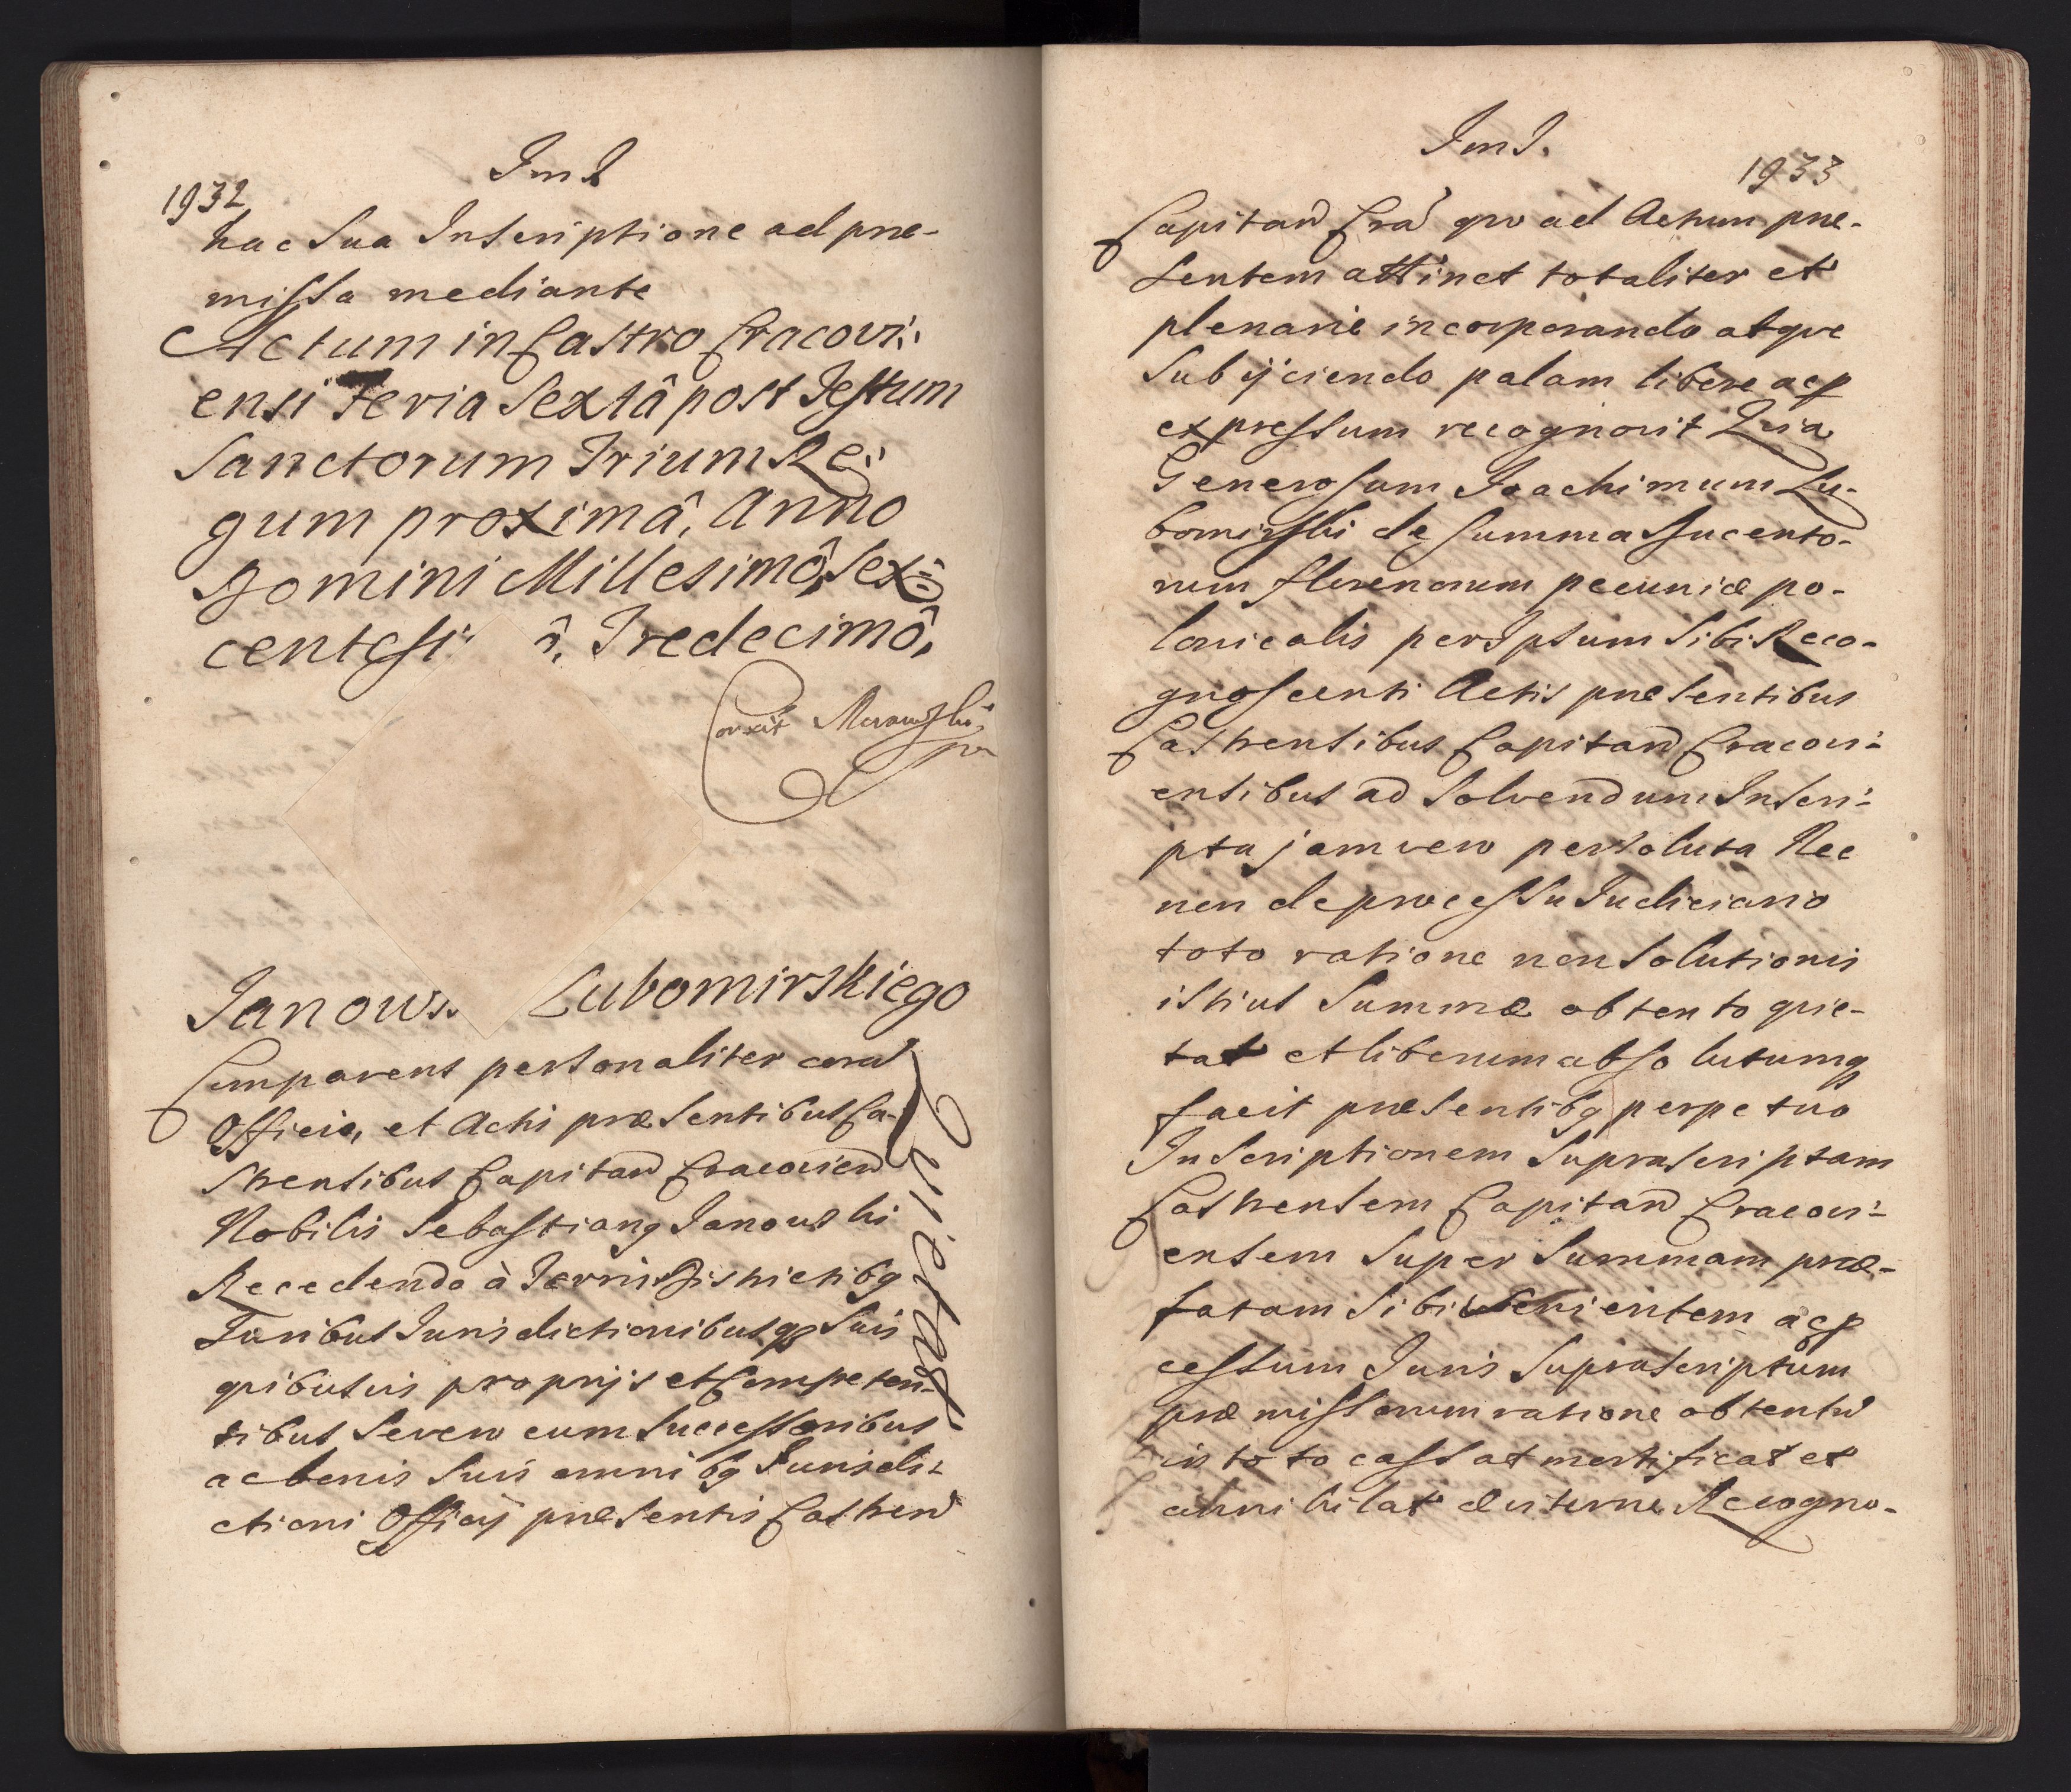 Im J
1932
hac Sua Inscriptione ad prae-
missa mediante
Actum in Castro Cracovi:
ensi Feria Sextâ post Festum
Sanctorum Trium Re:
gum proximâ, Anno
Domini Millesimô, Sex=
centesi ô, Tredecimô,
Conxit
Janows. Lubomirskiego
Comparens personaliter coram
Officio, et Actis praesentibus Ca-
strensibus Capitan Cracovien
Nobilis Sebastianq Janowski
Recedendo à Terris Districtibq
Juribus Jurisdictionibusqz Suis
quibusuis proprijs et Competen-
tibus Se vero cum Successoribus
ac bonis Suis omnibq Jurisdi-
ctioni Officij praesentis Castren
Quietat
Im J.
1933
Capitan Cra quo ad Actum prae-
sentem attinet totaliter et
plenarie incorporando atque
Subijciendo palam libere acqz
expressum recognovit Quia
Generosum Joachimum Lu-
bomirski de Summa Ducento-
rum florenorum pecuniæ po-
lonicalis per Ipsum Sibi Reco-
gnoscenti Actis praesentibus
Castrensibus Capitan Cracovi-
ensibus ad Solvendum Inscri-
pta jam vero persoluta Nec
non de processu Judiciario
toto ratione non Solutionis
istius Summæ obtento quie-
tat et liberum absolutumq
facit praesentibq perpetuo
Inscriptionem Suprascriptam
Castrensem Capitan Cracovi-
ensem Super Summam præ-
fatam Sibi Servientem acqz
cessum Juris Suprascriptum
præmissorum ratione obtentu
in toto cassat mortificat et
annihilat æviterne Recogno-